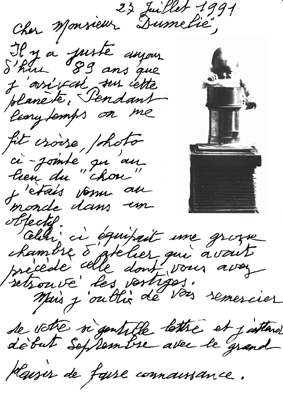 27 Juillet 1991
Cher Monsieur Dumelié,
Il y a juste aujour
d'hui 89 ans que
j'arrivai sur cette
planète. Pendant
longtemps on me
fit croire, photo
ci-jointe qu'au
lieu du "chou"
j'étais venu au
monde dans un
objectif.
Celui ci équipait une grosse
chambre d'atelier qui avait
précédé celle dont vous avez
retrouvé les vestiges.
Mais j'oublie de vous remercier
de votre si gentille lettre et j'attends
début Septembre avec le grand
plaisir de faire connaissance.